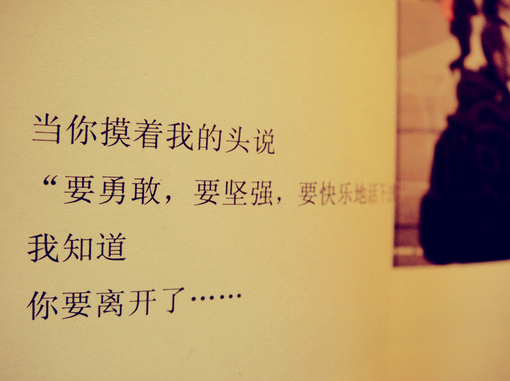 当你摸着我的头说
“要勇敢，要坚强，要快乐地活下
我知道
你要离开了……